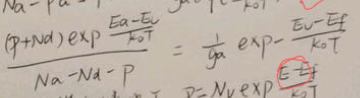 Na - pa
(p+Nd) exp (Ea-Ev)/(k₀T) / (Na-Nd-p) = 1/ga exp - (Ev-Ef)/(k₀T)
p = Nv exp (E-Ef)/(k₀T)